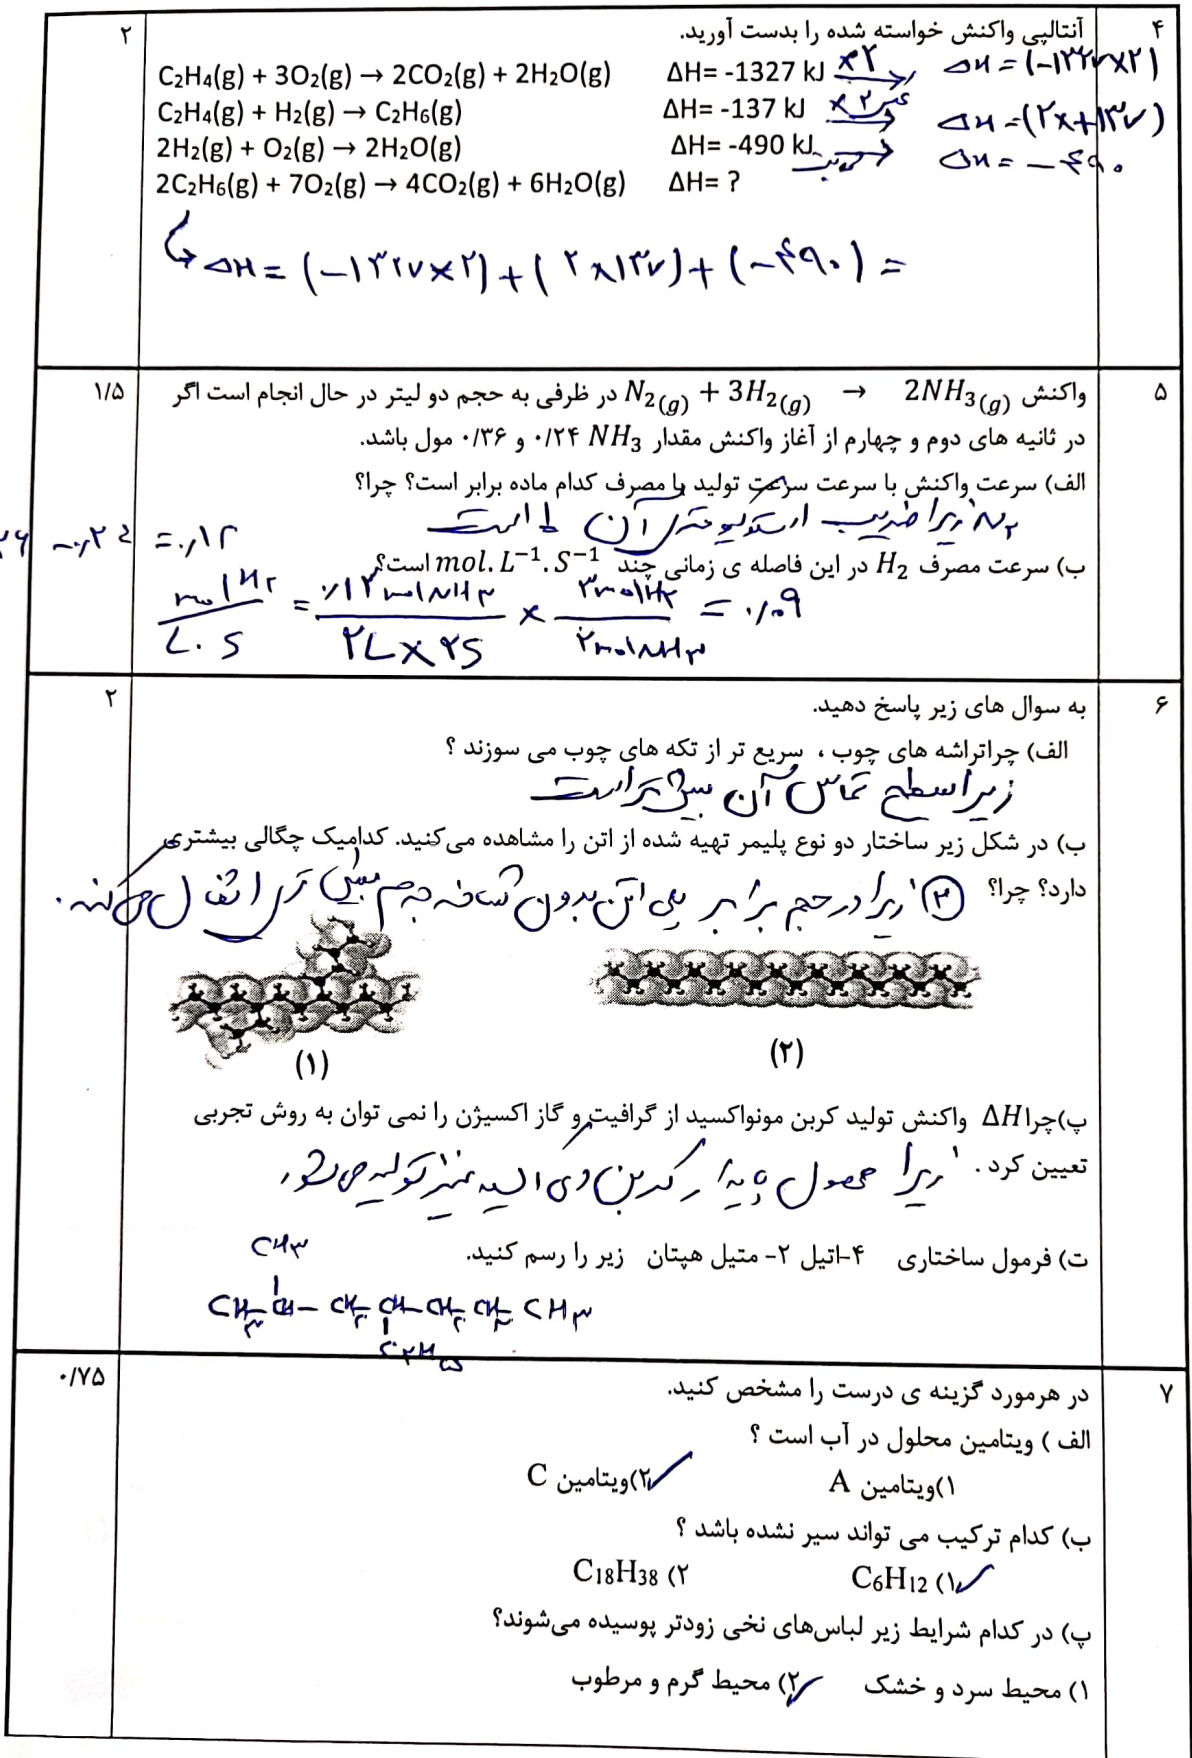 ۴
آنتالپی واکنش خواسته شده را بدست آورید.
۲
C2H4(g) + 3O2(g) → 2CO2(g) + 2H2O(g) ΔH= -1327 kJ ×۲ → ΔH = (-۱۳۲۷×۲)
C2H4(g) + H2(g) → C2H6(g) ΔH= -137 kJ ×۲ → ΔH = (۲×+۱۳۷)
2H2(g) + O2(g) → 2H2O(g) ΔH= -490 kJ → ΔH = -۴۹۰
2C2H6(g) + 7O2(g) → 4CO2(g) + 6H2O(g) ΔH= ?
ΔH = (-۱۳۲۷×۲) + (۲×۱۳۷) + (-۴۹۰) =
۵
واکنش N2(g) + 3H2(g) → 2NH3(g) در ظرفی به حجم دو لیتر در حال انجام است اگر
۱/۵
در ثانیه های دوم و چهارم از آغاز واکنش مقدار NH3 ۰/۲۴ و ۰/۳۶ مول باشد.
الف) سرعت واکنش با سرعت سرعت تولید یا مصرف کدام ماده برابر است؟ چرا؟
N۲ زیرا ضریب استوکیومتری آن ۱ است
ب) سرعت مصرف H2 در این فاصله ی زمانی چند mol.L−1.S−1 است؟
-۰٫۲۴ = ۰٫۱۲
mol H۲ / L.S = ۰/۱۲ mol NH۳ / ۲L×۲S × ۳mol H۲ / ۲mol NH۳ = ۰/۰۹
۶
به سوال های زیر پاسخ دهید.
۲
الف) چراتراشه های چوب ، سریع تر از تکه های چوب می سوزند ؟
زیرا سطح تماس آن بیش تر است
ب) در شکل زیر ساختار دو نوع پلیمر تهیه شده از اتن را مشاهده می‌کنید. کدامیک چگالی بیشتری
دارد؟ چرا؟ ۲ زیرا در حجم برابر پلی اتن بدون شاخه جرم بیش تری اشغال می کند.
(۱)
(۲)
پ)چرا ΔH واکنش تولید کربن مونواکسید از گرافیت و گاز اکسیژن را نمی توان به روش تجربی
تعیین کرد . زیرا محصول پایدار کربن دی اکسید نیز تولید می شود
ت) فرمول ساختاری ۴-اتیل ۲- متیل هپتان زیر را رسم کنید.
CH۳
CH۳-CH-CH۲-CH-CH۲-CH۲-CH۳
C۲H۵
۷
در هرمورد گزینه ی درست را مشخص کنید.
۰/۷۵
الف ) ویتامین محلول در آب است ؟
۱)ویتامین A ۲)ویتامین C
ب) کدام ترکیب می تواند سیر نشده باشد ؟
۱) C6H12 ۲) C18H38
پ) در کدام شرایط زیر لباس‌های نخی زودتر پوسیده می‌شوند؟
۱) محیط سرد و خشک ۲) محیط گرم و مرطوب